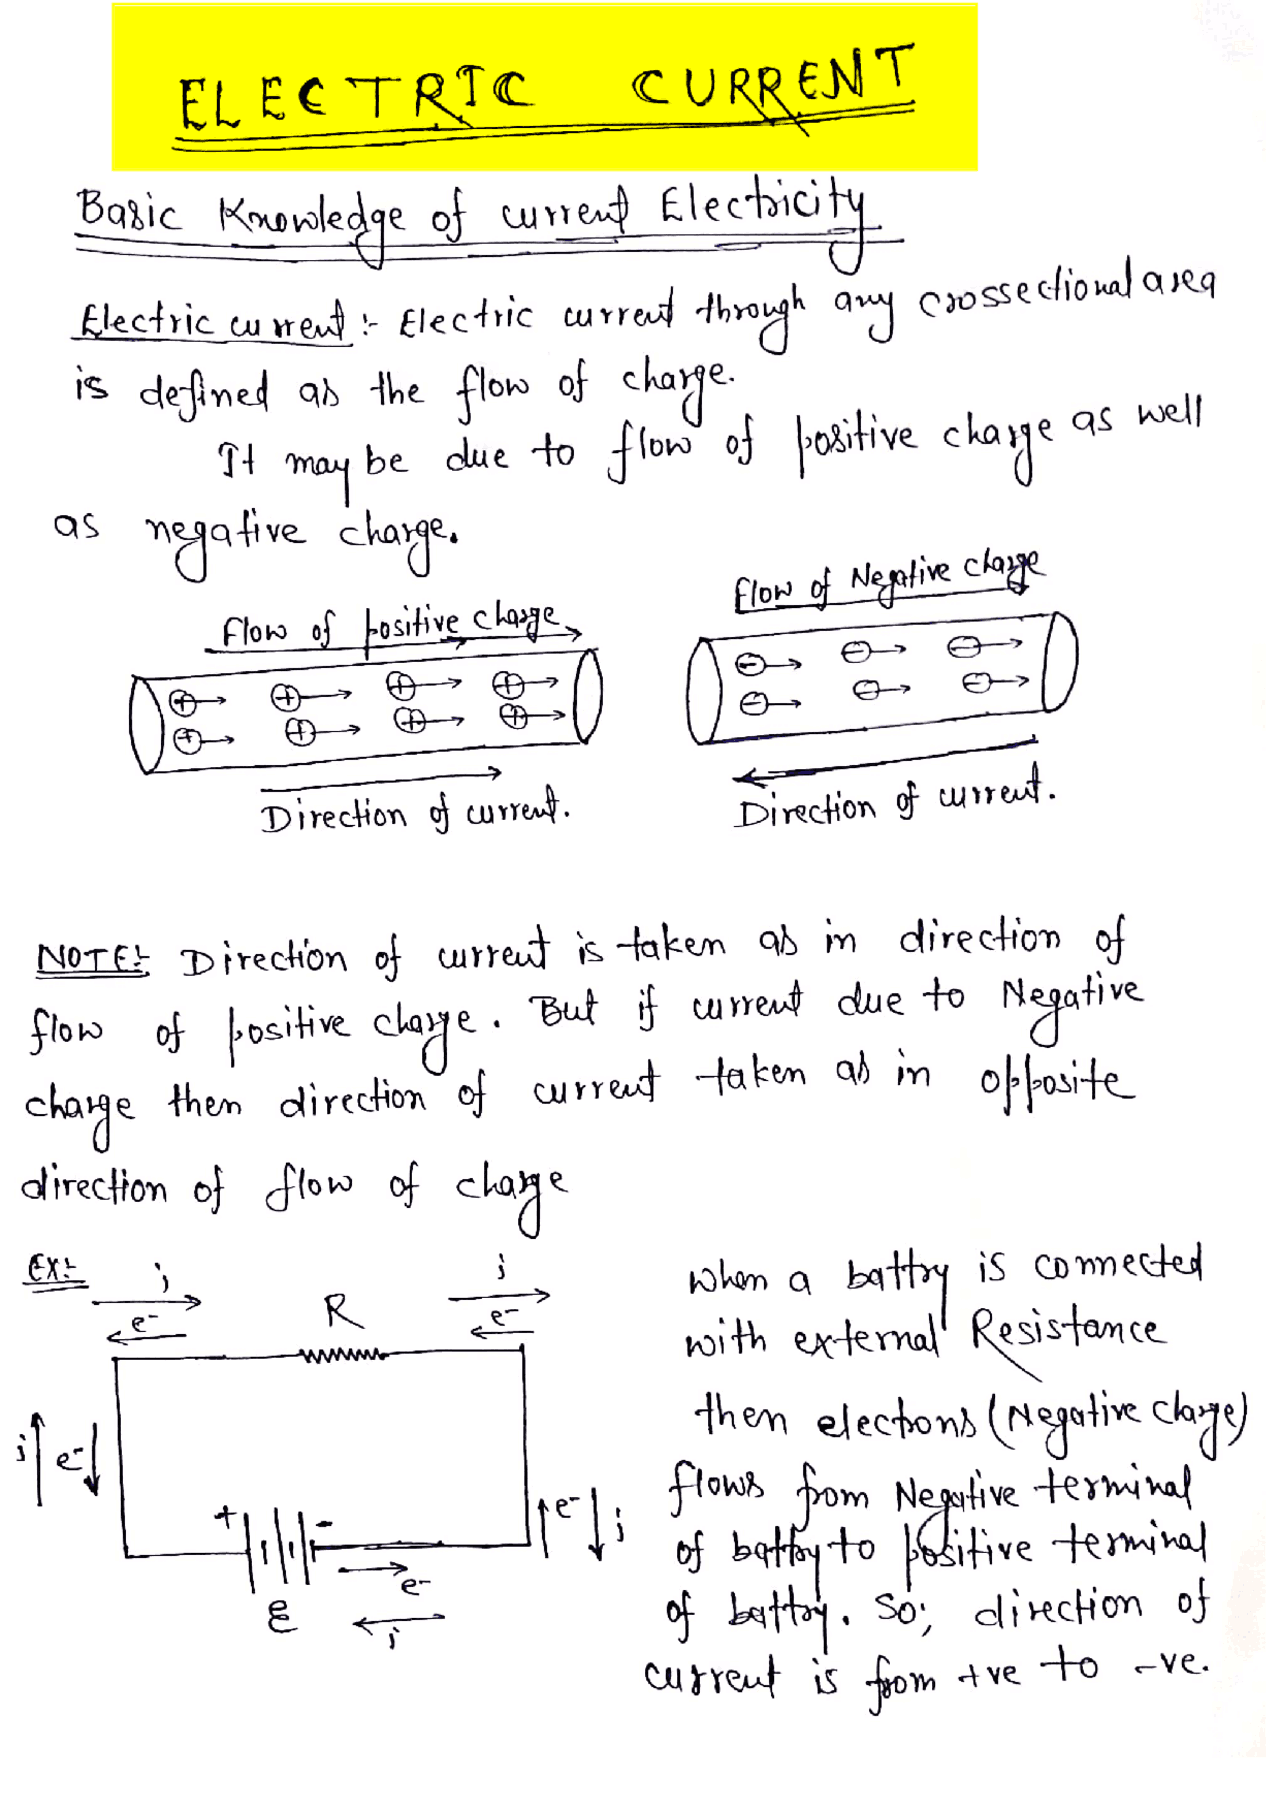 ELECTRIC CURRENT
Basic Knowledge of current Electricity
Electric current :- Electric current through any crossectional area
is defined as the flow of charge.
It may be due to flow of positive charge as well
as negative charge.
Flow of positive charge
Flow of Negative charge
+ + + +
+ + + +
- - -
- - -
Direction of current.
Direction of current.
NOTE:- Direction of current is taken as in direction of
flow of positive charge. But if current due to Negative
charge then direction of current taken as in opposite
direction of flow of charge
EX:-
i
e-
R
i
e-
i
e-
+
-
ε
e-
i
e-
i
When a battry is connected
with external Resistance
then elections (Negative charge)
flows from Negative terminal
of battry to positive terminal
of battry. So; direction of
current is from +ve to -ve.